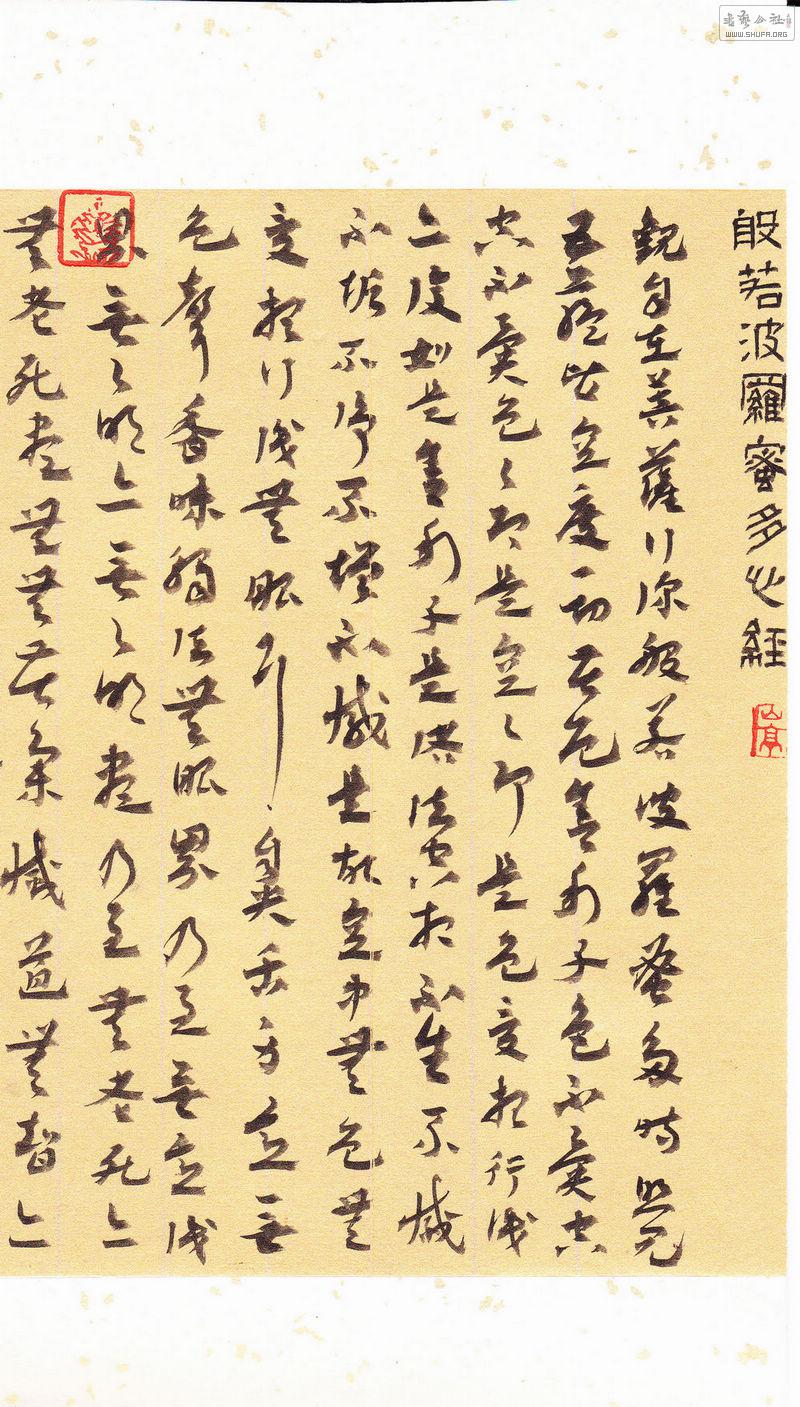 書藝公社
WWW.SHUFA.ORG
般若波羅蜜多心經
觀自在菩薩行深般若波羅蜜多時照見
五蘊皆空度一切苦厄舍利子色不異空
空不異色々即是空々即是色受想行識
亦復如是舍利子是諸法空相不生不滅
不垢不淨不增不減是故空中無色無
受想行識無眼耳鼻舌身意無
色聲香味觸法無眼界乃至無意識
界無々明亦無々明盡乃至無老死亦
無老死盡無無苦集滅道無智亦